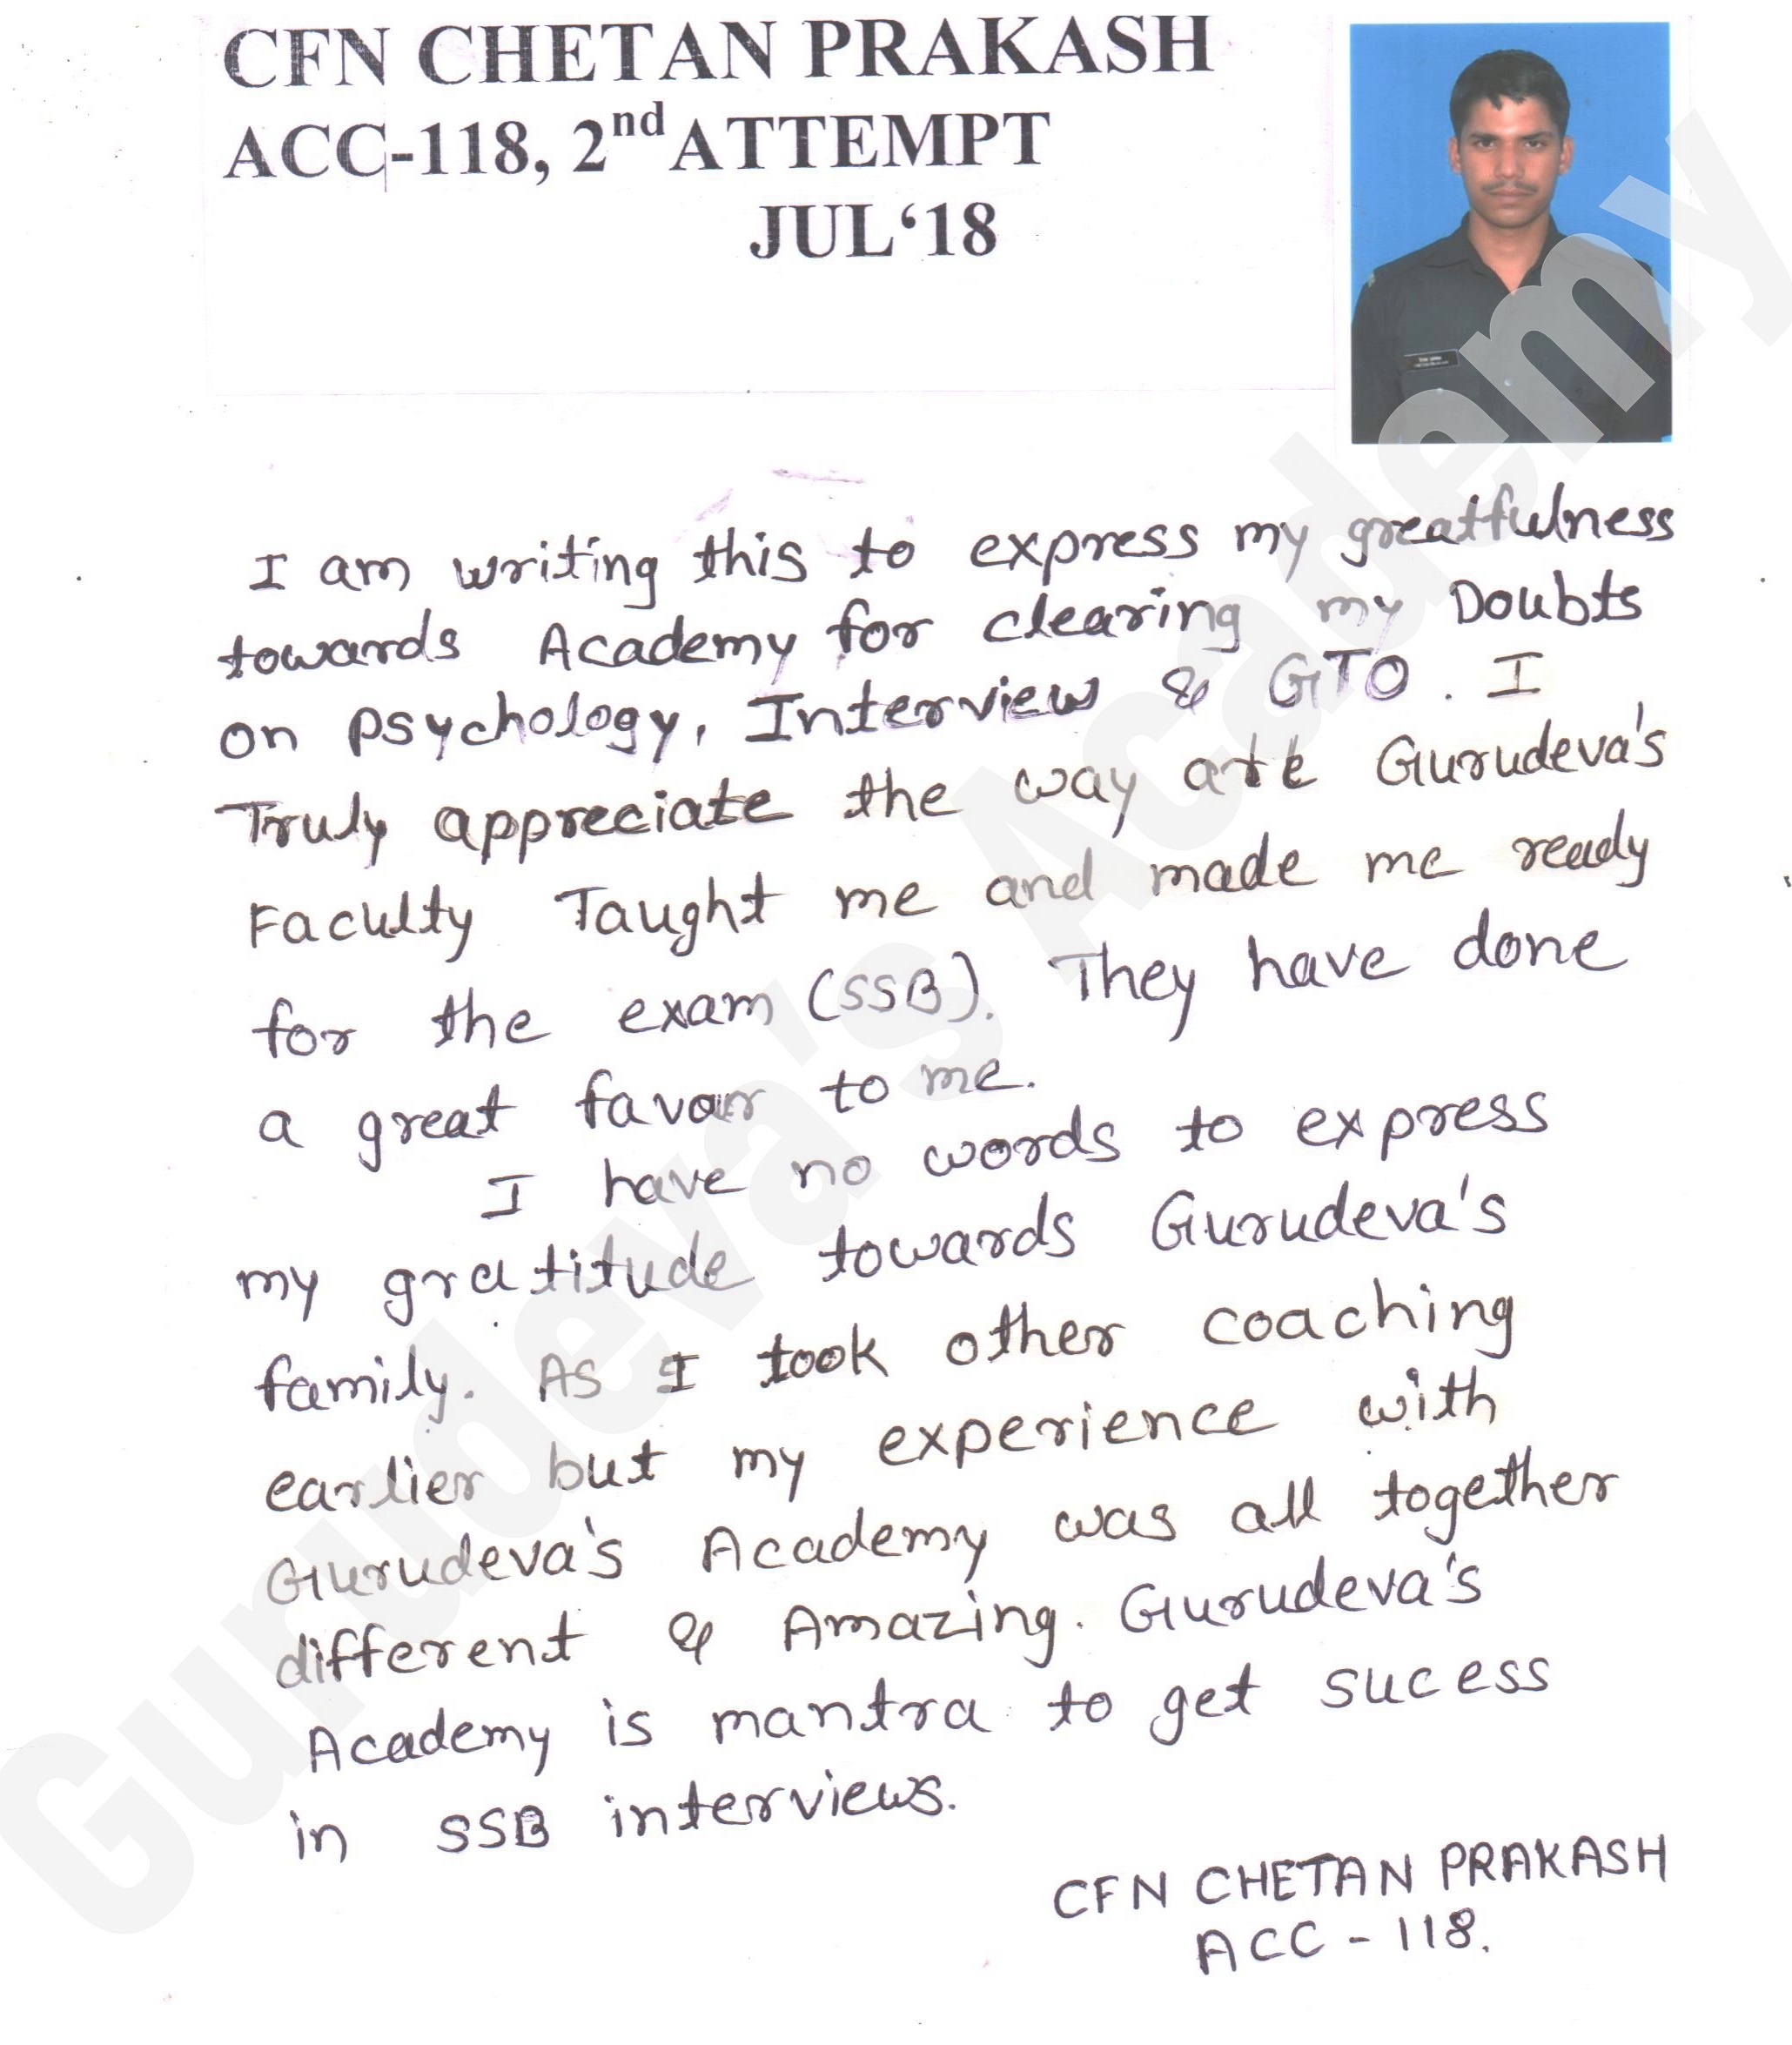 CFN CHETAN PRAKASH
ACC-118, 2nd ATTEMPT
JUL‘18
I am writing this to express my greatfulness
towards Academy for clearing my Doubts
on psychology, Interview & GTO. I
Truly appreciate the way Gurudeva's
Faculty Taught me and made me ready
for the exam (SSB). They have done
a great favour to me.
I have no words to express
my gratitude towards Gurudeva's
family. As I took other coaching
earlier but my experience with
Gurudeva's Academy was all together
different & Amazing. Gurudeva's
Academy is mantra to get sucess
in SSB interviews.
CFN CHETAN PRAKASH
ACC - 118.
Gurudeva's Academy